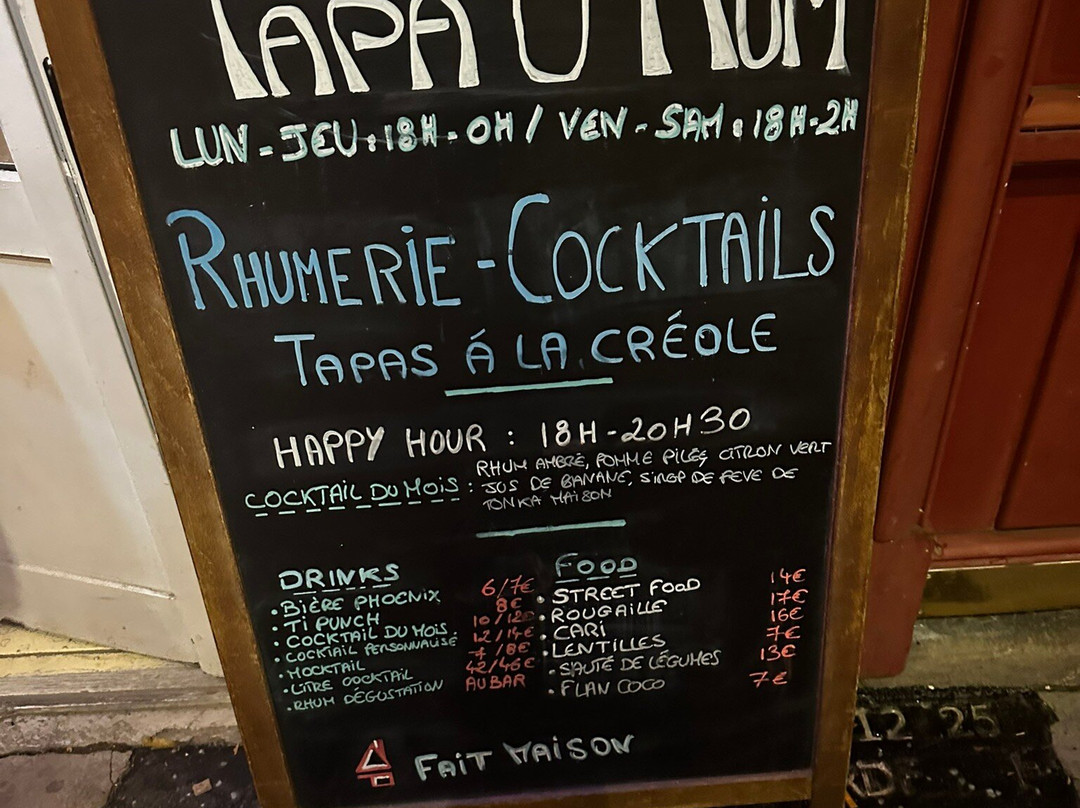 TAPA Ô RUM
LUN - JEU : 18H - 0H / VEN - SAM : 18H - 2H
RHUMERIE - COCKTAILS
TAPAS Á LA CRÉOLE
HAPPY HOUR : 18H - 20H30
COCKTAIL DU MOIS : RHUM AMBRÉ, POMME PILÉE, CITRON VERT
JUS DE BANANE, SIROP DE FEVE DE
TONKA MAISON
DRINKS
• BIÈRE PHOENIX 6/7€
• TI PUNCH 8€
• COCKTAIL DU MOIS 10/12€
• COCKTAIL PERSONNALISÉ 12/14€
• MOCKTAIL 7/8€
• LITRE COCKTAIL 42/46€
• RHUM DÉGUSTATION AU BAR
FOOD
• STREET FOOD 14€
• ROUGAILLE 17€
• CARI 16€
• LENTILLES 7€
• SAUTÉ DE LÉGUMES 13€
• FLAN COCO 7€
FAIT MAISON
12 25